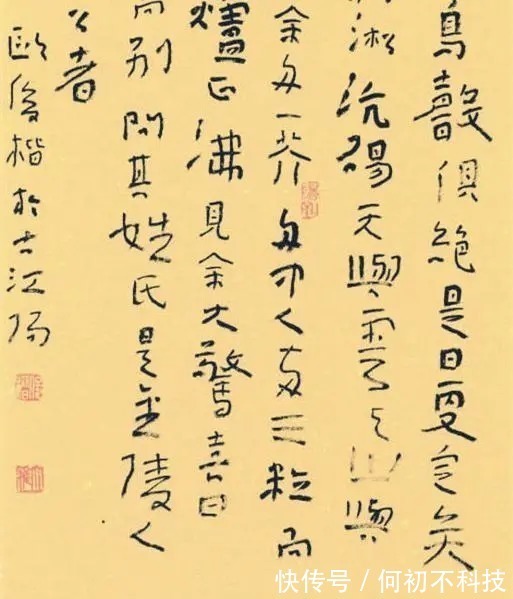 鳥聲俱絕是日更定矣
淞沆碭天與雲与山與
余舟一芥舟中人兩三粒而
爐正沸見余大驚喜曰
而別問其姓氏是金陵人
者
歐楷於古江陽
快传号 / 何初不科技